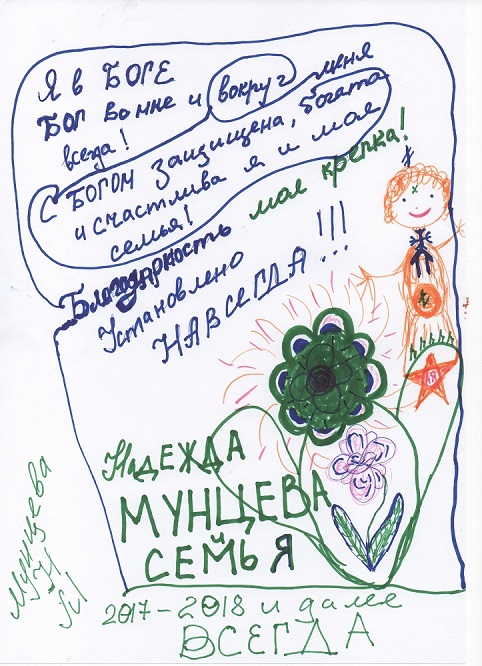 Я в БОГЕ
БОГ во мне и вокруг меня
всегда!
С БОГОМ защищена, богата
и счастлива я и моя
семья!
Благодарность моя крепка!
Установлено !!!
НАВСЕГДА...
Я
НАДЕЖДА
МУНЦЕВА
и
СЕМЬЯ
Мунцева
2017-2018 и далее
ВСЕГДА